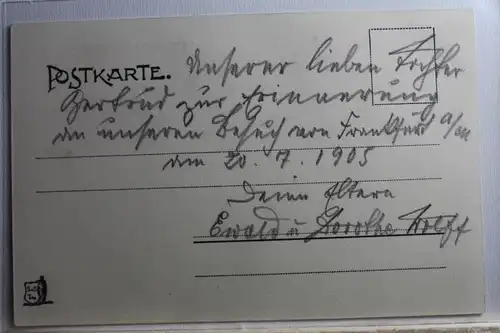 POSTKARTE.
Unserer lieben Tochter
Gertrud zur Erinnerung
an unseren Besuch von Frankfurt a/M
am 20. 7. 1905
Deine Eltern
Ewald u Dorothe Wolff